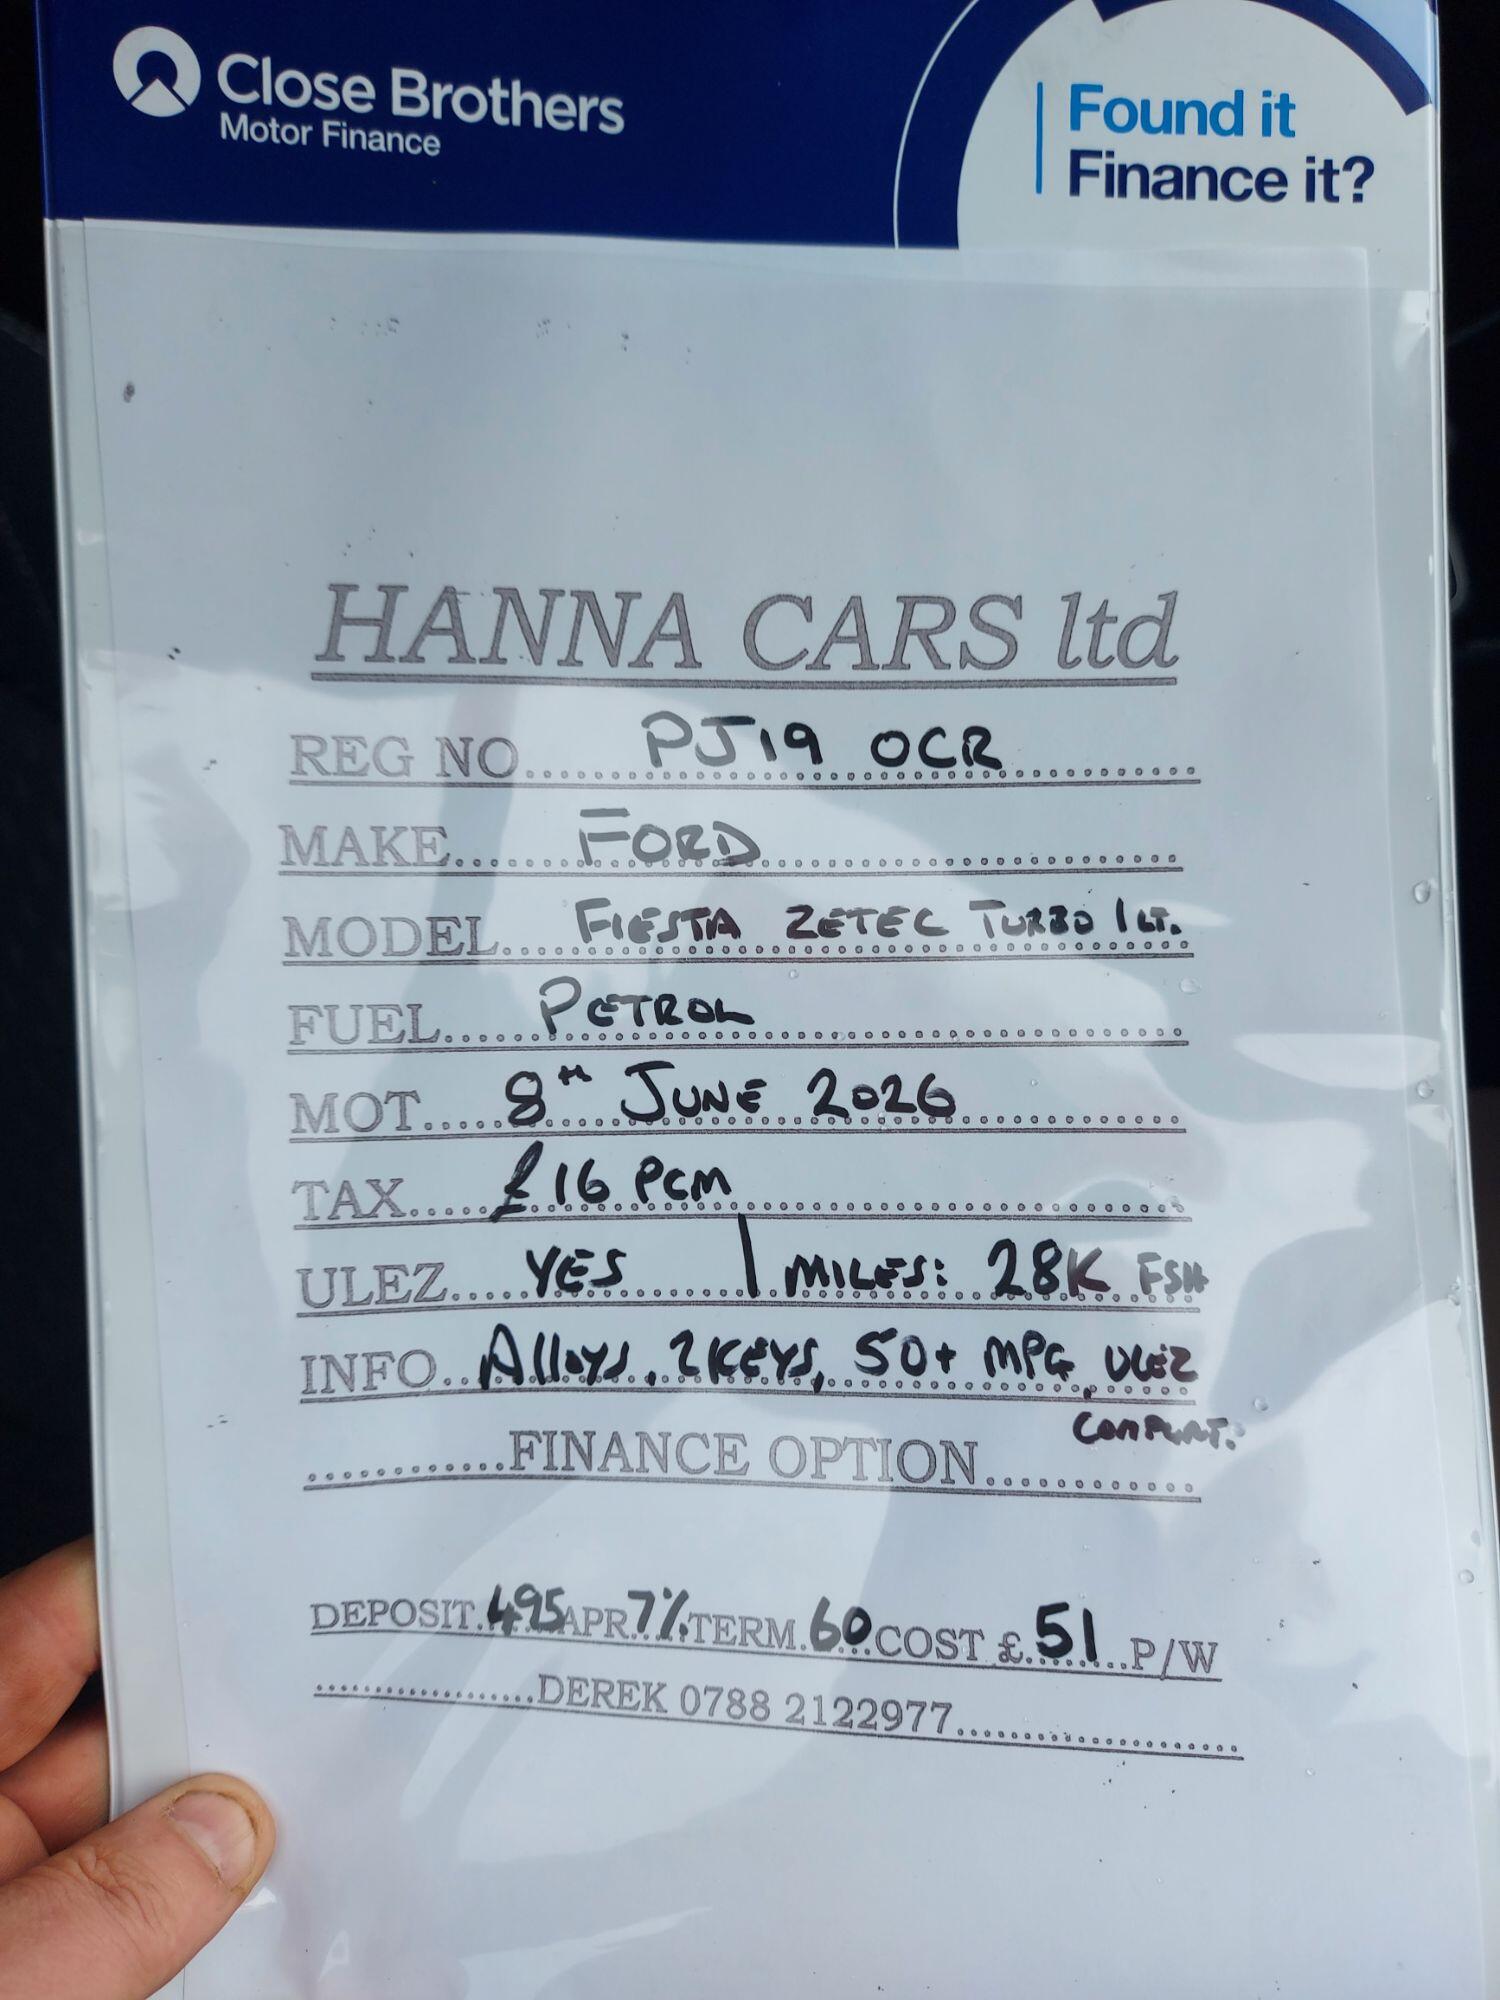 Close Brothers
Motor Finance
Found it
Finance it?
HANNA CARS ltd
REG NO PJ19 OCR
MAKE FORD
MODEL FIESTA ZETEC TURBO 1 LT.
FUEL PETROL
MOT 8TH JUNE 2026
TAX £16 PCM
ULEZ YES | MILES: 28K FSH
INFO Alloys, 2 KEYS, 50+ MPG, ULEZ
FINANCE OPTION
DEPOSIT 495 APR 7% TERM 60 COST £ 51 P/W
DEREK 0788 2122977